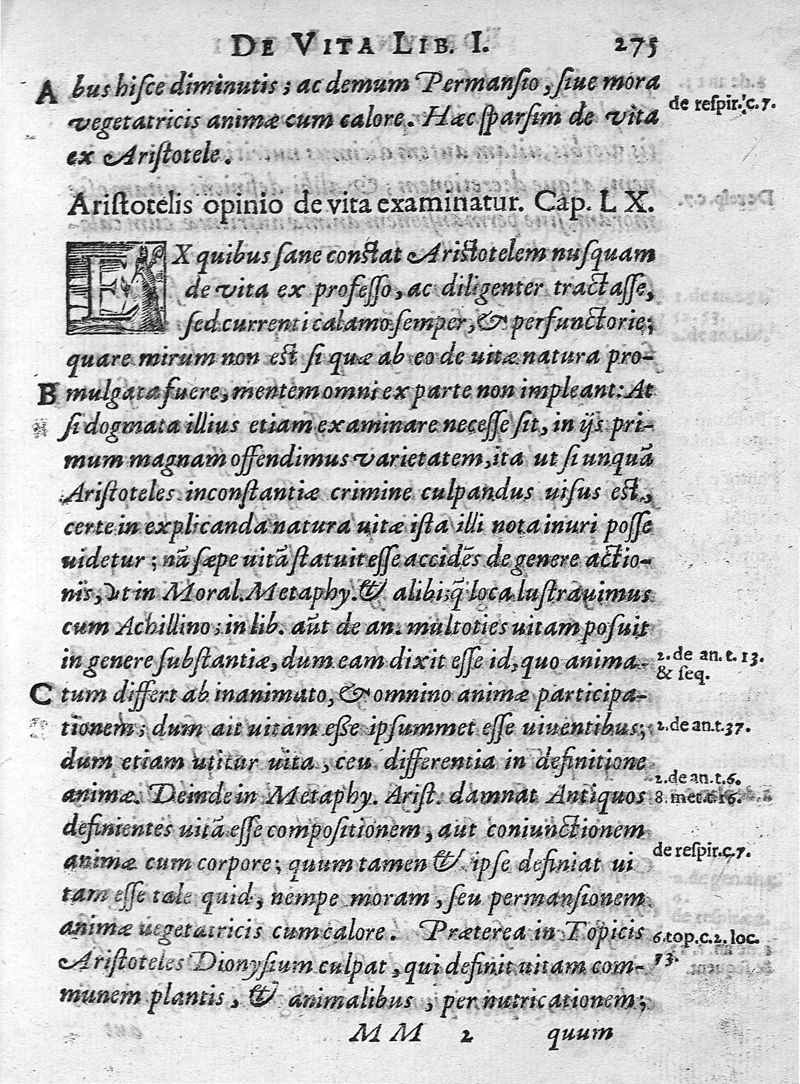 DE VITA LIB. I. 275
A bus hisce diminutis; ac demum Permansio, siue mora
vegetatricis animæ cum calore. Hæc sparsim de vita
de respir. c. 7.
ex Aristotele.
Aristotelis opinio de vita examinatur. Cap. LX.
EX quibus sane constat Aristotelem nusquam
de vita ex professo, ac diligenter tractasse,
sed currenti calamo semper, & perfunctorie;
quare mirum non est si quæ ab eo de uitæ natura pro-
B mulgata fuere, mentem omni ex parte non impleant: At
si dogmata illius etiam examinare necesse sit, in ijs pri-
mum magnam offendimus varietatem, ita ut si unquã
Aristoteles inconstantiæ crimine culpandus uisus est,
certe in explicanda natura uitæ ista illi nota inuri posse
uidetur; nã sæpe uitã statuit esse accidẽs de genere actio-
nis, vt in Moral. Metaphy. & alibi; q̃ loca lustrauimus
cum Achillino; in lib. aũt de an. multoties uitam posuit
in genere substantiæ, dum eam dixit esse id, quo anima-
2. de an. t. 13.
& seq.
C tum differt ab inanimato, & omnino animæ participa-
tionem; dum ait uitam esse ipsummet esse uiuentibus;
2. de an. t. 37.
dum etiam utitur uita, ceu differentia in definitione
2. de an. t. 6.
animæ. Deinde in Metaphy. Arist. damnat Antiquos
8. met. t. 16.
definientes uitã esse compositionem, aut coniunctionem
animæ cum corpore; quum tamen & ipse definiat ui
de respir. c. 7.
tam esse tale quid, nempe moram, seu permansionem
animæ uegetatricis cum calore. Præterea in Topicis
6. top. c. 2. loc.
13.
Aristoteles Dionysium culpat, qui definit uitam com-
munem plantis, & animalibus, per nutricationem;
MM 2 quum